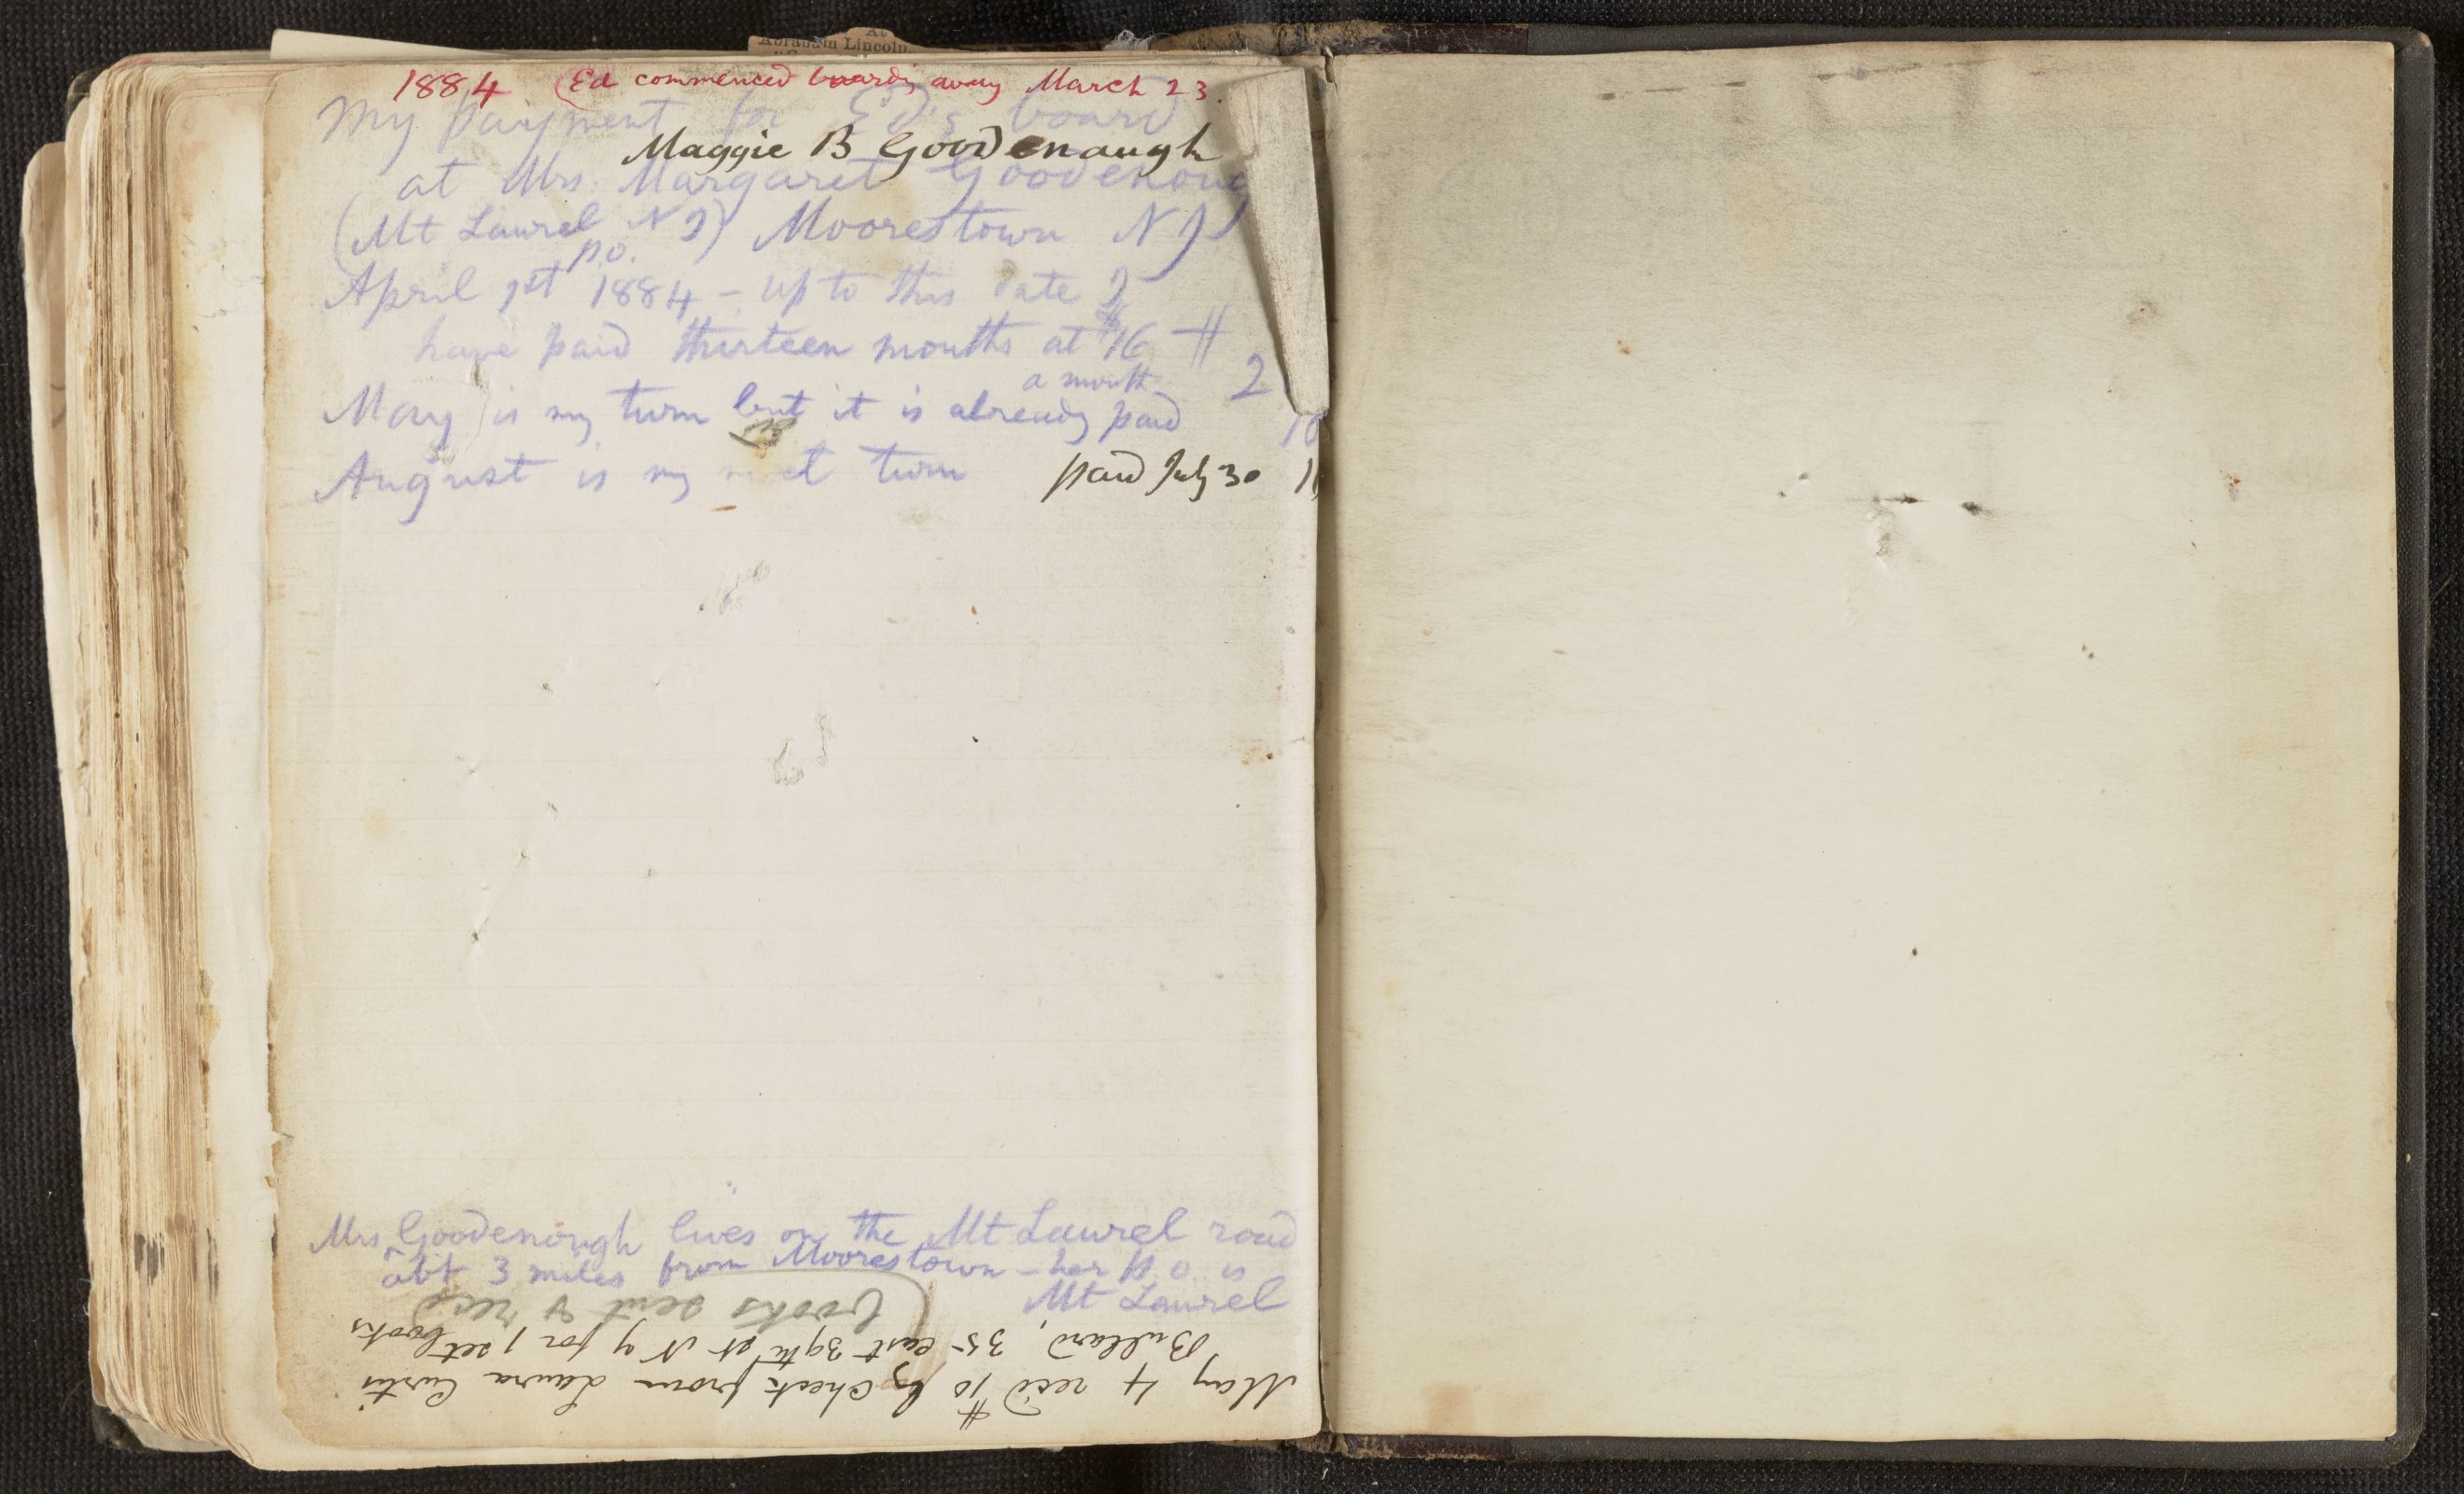 At
Abraham Lincoln
1884 (Ed commenced boarding away March 23.
My payment for Ed's board
Maggie B Goodenaugh
at Mrs. Margaret Goodenoug
(Mt Laurel N J) Moorestown N J
p.o.
April 1st 1884 – up to this date I
have paid thirteen months at $16 –
a month
May is my turn but it is already paid
August is my next turn paid July 30
Mrs Goodenough lives on the Mt Laurel road
abt 3 miles from Moorestown – her p.o. is
Mt Laurel
May 4 rec'd $10 by check from Laura Curtis
Bullard, 35 east 39th st N Y for 1 set books
(books sent & rec'd)